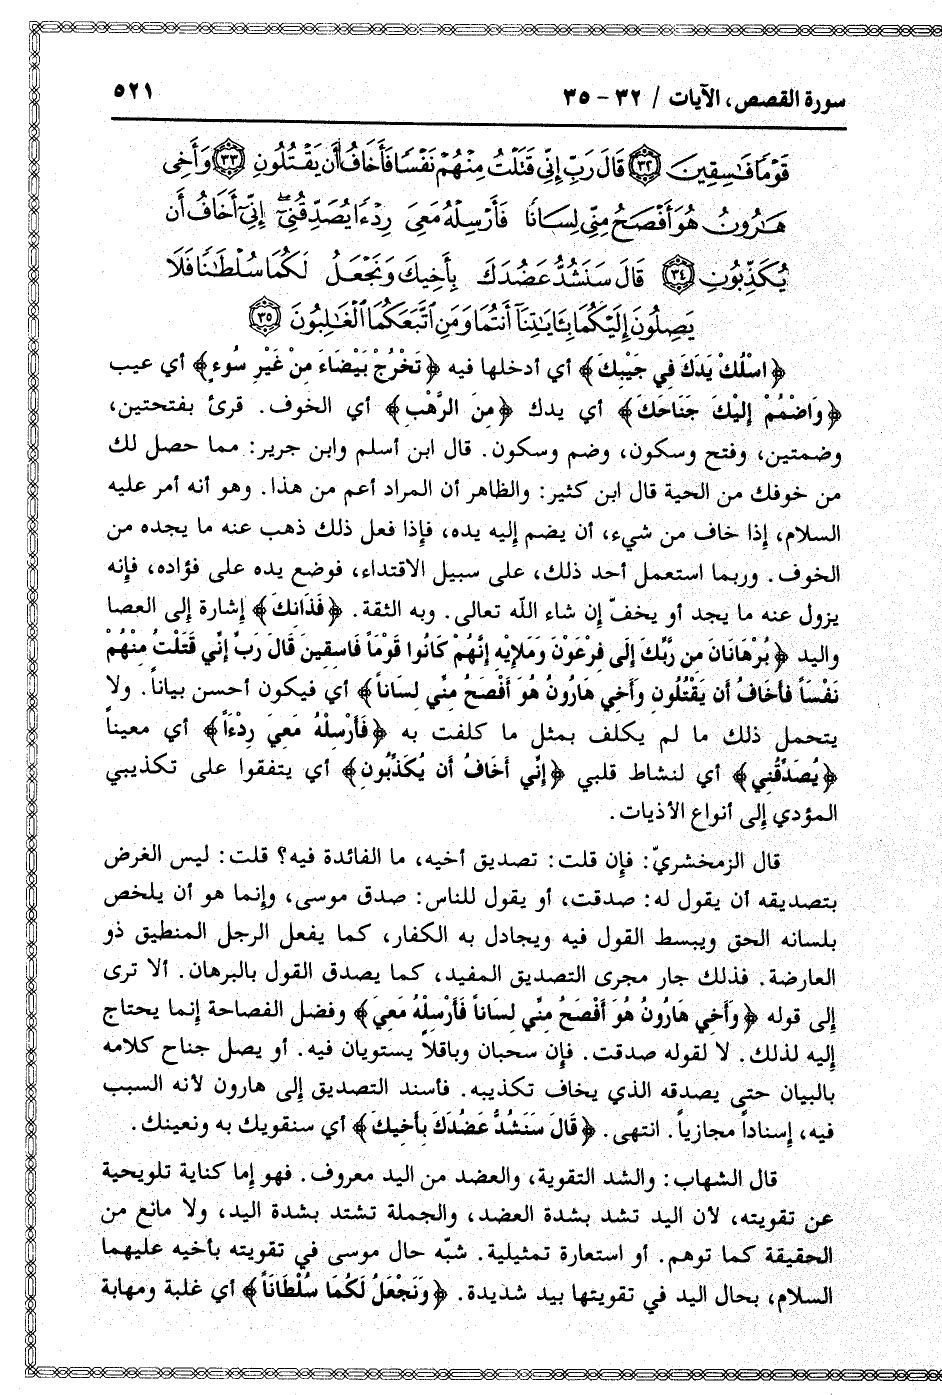 سورة القصص، الآيات / ٣٢ - ٣٥ ٥٢١
قَوْمًا فَٰسِقِينَ ٣٢ قَالَ رَبِّ إِنِّي قَتَلْتُ مِنْهُمْ نَفْسًا فَأَخَافُ أَن يَقْتُلُونِ ٣٣ وَأَخِي
هَٰرُونُ هُوَ أَفْصَحُ مِنِّي لِسَانًا فَأَرْسِلْهُ مَعِيَ رِدْءًا يُصَدِّقُنِيٓ ۖ إِنِّيٓ أَخَافُ أَن
يُكَذِّبُونِ ٣٤ قَالَ سَنَشُدُّ عَضُدَكَ بِأَخِيكَ وَنَجْعَلُ لَكُمَا سُلْطَٰنًا فَلَا
يَصِلُونَ إِلَيْكُمَا بِـَٔايَٰتِنَآ أَنتُمَا وَمَنِ ٱتَّبَعَكُمَا ٱلْغَٰلِبُونَ ٣٥
﴿اسْلُكْ يَدَكَ فِي جَيْبِكَ﴾ أي أدخلها فيه ﴿تَخْرُجْ بَيْضَاءَ مِنْ غَيْرِ سُوءٍ﴾ أي عيب
﴿وَاضْمُمْ إِلَيْكَ جَنَاحَكَ﴾ أي يدك ﴿مِنَ الرَّهْبِ﴾ أي الخوف. قرئ بفتحتين،
وضمتين، وفتح وسكون، وضم وسكون. قال ابن أسلم وابن جرير: مما حصل لك
من خوفك من الحية قال ابن كثير: والظاهر أن المراد أعم من هذا. وهو أنه أمر عليه
السلام، إذا خاف من شيء، أن يضم إليه يده، فإذا فعل ذلك ذهب عنه ما يجده من
الخوف. وربما استعمل أحد ذلك، على سبيل الاقتداء، فوضع يده على فؤاده، فإنه
يزول عنه ما يجد أو يخفّ إن شاء الله تعالى. وبه الثقة. ﴿فَذَانِكَ﴾ إشارة إلى العصا
واليد ﴿بُرْهَانَانِ مِن رَّبِّكَ إِلَى فِرْعَوْنَ وَمَلَإِيْهِ إِنَّهُمْ كَانُوا قَوْمَاً فَاسِقِينَ قَالَ رَبِّ إِنِّي قَتَلْتُ مِنْهُمْ
نَفْسَاً فَأَخَافُ أَن يَقْتُلُونِ وَأَخِي هَارُونُ هُوَ أَفْصَحُ مِنِّي لِسَاناً﴾ أي فيكون أحسن بياناً. ولا
يتحمل ذلك ما لم يكلف بمثل ما كلفت به ﴿فَأَرْسِلْهُ مَعِيَ رِدْءَاً﴾ أي معيناً
﴿يُصَدِّقُنِي﴾ أي لنشاط قلبي ﴿إِنِّي أَخَافُ أَن يُكَذِّبُونِ﴾ أي يتفقوا على تكذيبي
المؤدي إلى أنواع الأذيات.
قال الزمخشريّ: فإن قلت: تصديق أخيه، ما الفائدة فيه؟ قلت: ليس الغرض
بتصديقه أن يقول له: صدقت، أو يقول للناس: صدق موسى، وإنما هو أن يلخص
بلسانه الحق ويبسط القول فيه ويجادل به الكفار، كما يفعل الرجل المنطيق ذو
العارضة. فذلك جار مجرى التصديق المفيد، كما يصدق القول بالبرهان. ألا ترى
إلى قوله ﴿وَأَخِي هَارُونُ هُوَ أَفْصَحُ مِنِّي لِسَاناً فَأَرْسِلْهُ مَعِيَ﴾ وفضل الفصاحة إنما يحتاج
إليه لذلك. لا لقوله صدقت. فإن سحبان وباقلاً يستويان فيه. أو يصل جناح كلامه
بالبيان حتى يصدقه الذي يخاف تكذيبه. فأسند التصديق إلى هارون لأنه السبب
فيه، إسناداً مجازياً. انتهى. ﴿قَالَ سَنَشُدُّ عَضُدَكَ بِأَخِيكَ﴾ أي سنقويك به ونعينك.
قال الشهاب: والشد التقوية، والعضد من اليد معروف. فهو إما كناية تلويحية
عن تقويته، لأن اليد تشد بشدة العضد، والجملة تشتد بشدة اليد، ولا مانع من
الحقيقة كما توهم. أو استعارة تمثيلية. شبّه حال موسى في تقويته بأخيه عليهما
السلام، بحال اليد في تقويتها بيد شديدة. ﴿وَنَجْعَلُ لَكُمَا سُلْطَاناً﴾ أي غلبة ومهابة